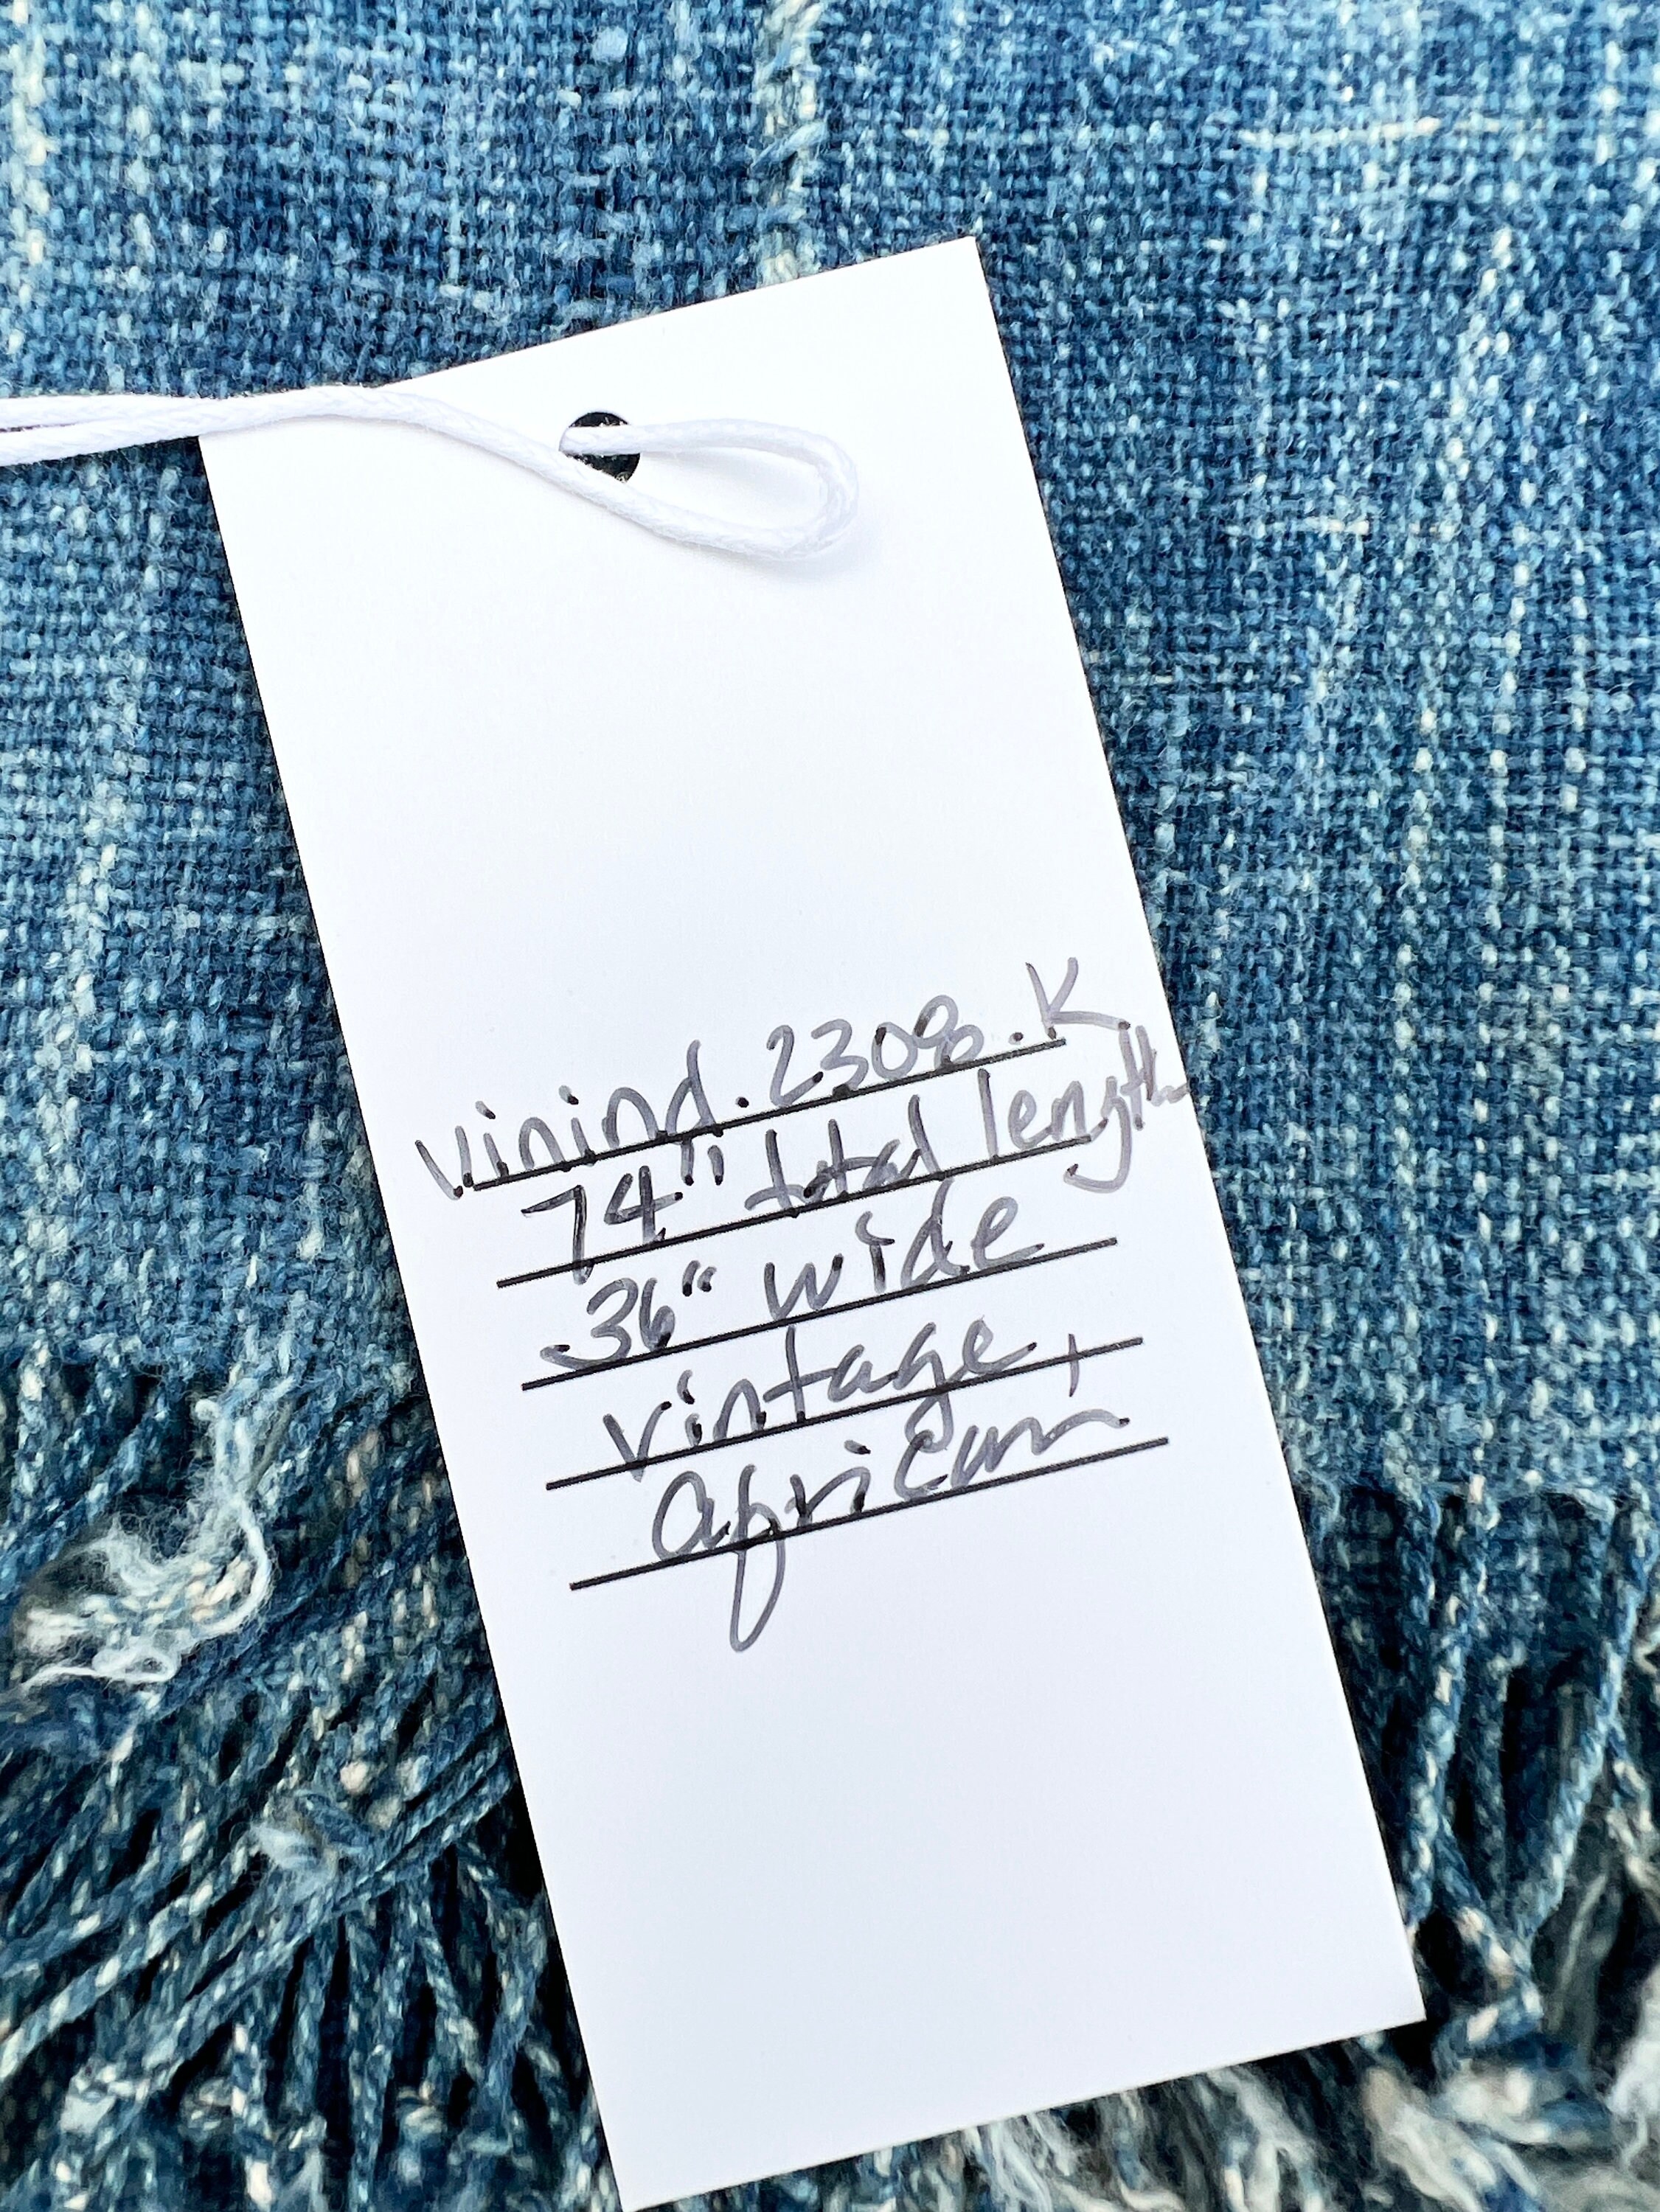 vining.2308.K
74" total length
36" wide
vintage,
african